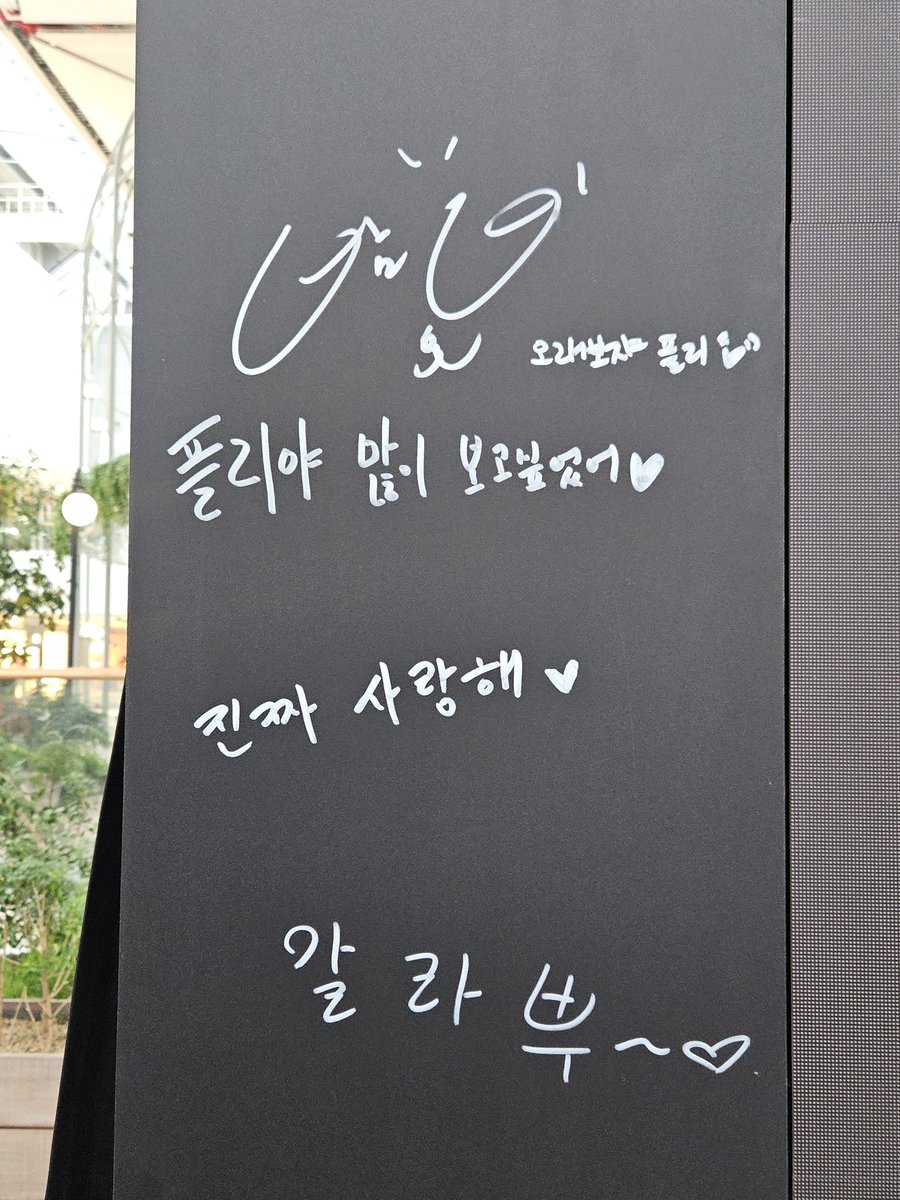 오래보자 플리
플리야 많이 보고싶었어♥
진짜 사랑해♥
갈라부~♡